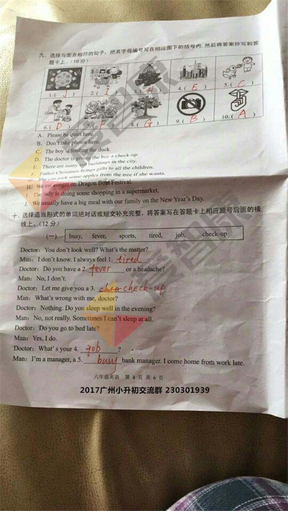 九、选择与图意相符的句子，把其字母编号写在相应图下的括号内，然后将答案抄写到答题卡上。(10分)
4.( E )
6.( D ) 8.( G ) 9.( B ) 10.( A )
A. Please be quiet here.
B. Don't take photos here.
C. The boy is feeding the duck.
D. The doctor is giving the boy a check-up
E. There are some tall buildings in the city.
F. Father Christmas brings gifts to all the children.
G. You can pick some apples from the tree if she wants.
Dragon Boat Festival.
is doing some shopping in a supermarket.
family have a big meal with our family on the New Year's Day.
十、选择适当形式的单词把对话或短文补充完整，将答案写在答题卡上相应题号后面的横线上。(12分)
(一) busy, fever, sports, tired, job, check-up
Doctor: You don't look well? What's the matter?
Man: I don't know. I always feel 1. tired
Doctor: Do you have a 2. fever or a headache?
Man: No, I don't.
Doctor: Let me give you a 3. check-up
Man: What's wrong with me, doctor?
Doctor: Nothing. Do you sleep well in the evening?
Man: No, not really. Sometimes I can't sleep at all.
Doctor: Do you go to bed late?
Man: Yes, I do.
Doctor: What's your 4. job ?
Man: I'm a manager, a 5. busy bank manager. I come home from work late.
2017广州小升初交流群 230301939